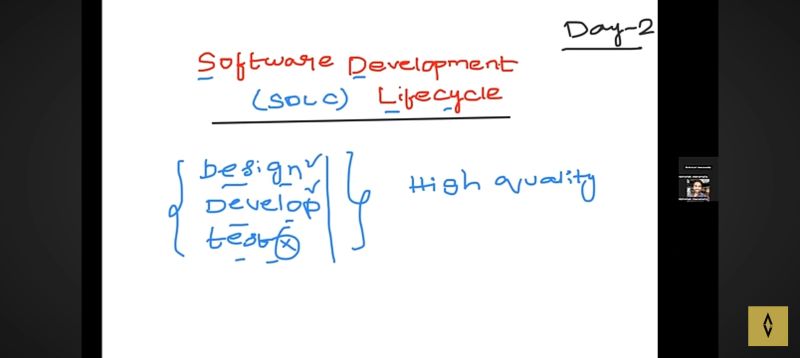 Day-2
Software Development
(SDLC) Lifecycle
Design ✓
Develop ✓
test ⓧ
High quality